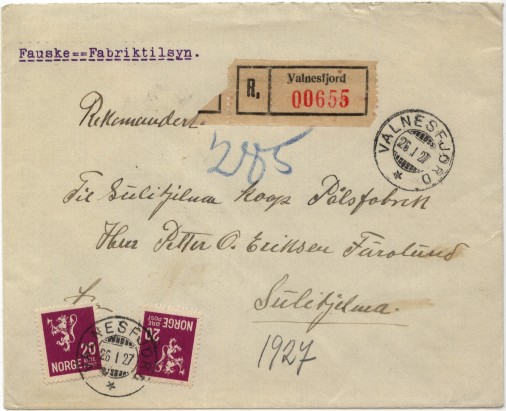 Fauske==Fabriktilsyn.
R. Valnesfjord
00655
Rekommandert
205
VALNESFJORD
26 1 27
Til Sulitjelma Koop Pølsfabrik
Herr Petter O. Eriksen Furulund
Sulitjelma.
1927
NORGE 20 ØRE POST
NORGE 20 ØRE POST
VALNESFJORD
26 1 27